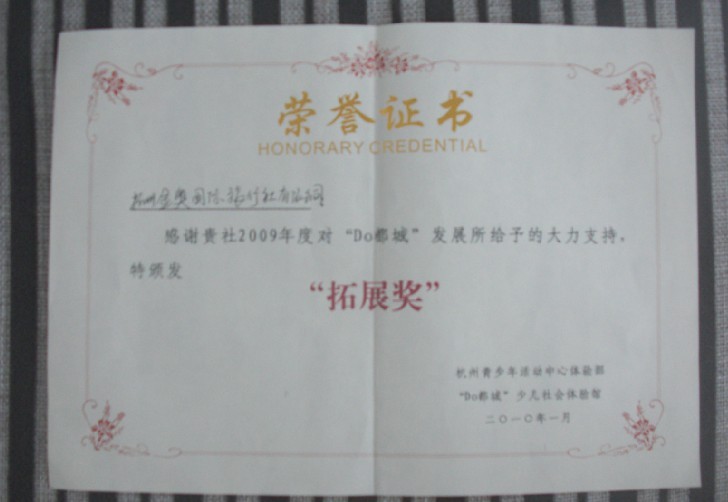 荣誉证书
HONORARY CREDENTIAL
杭州金奥国际旅行社有限公司
感谢贵社2009年度对“Do都城”发展所给予的大力支持,
特颁发
“拓展奖”
杭州青少年活动中心体验部
“Do都城”少儿社会体验馆
二〇一〇年一月